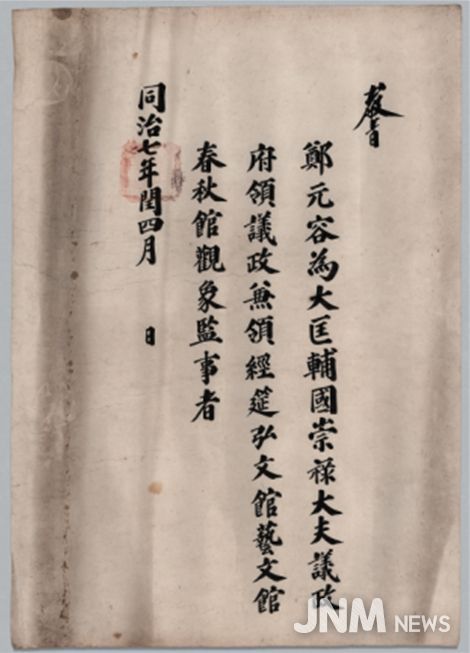 敎旨
鄭元容爲大匡輔國崇祿大夫議政
府領議政兼領經筵弘文館藝文館
春秋館觀象監事者
同治七年閏四月 日
JNM NEWS